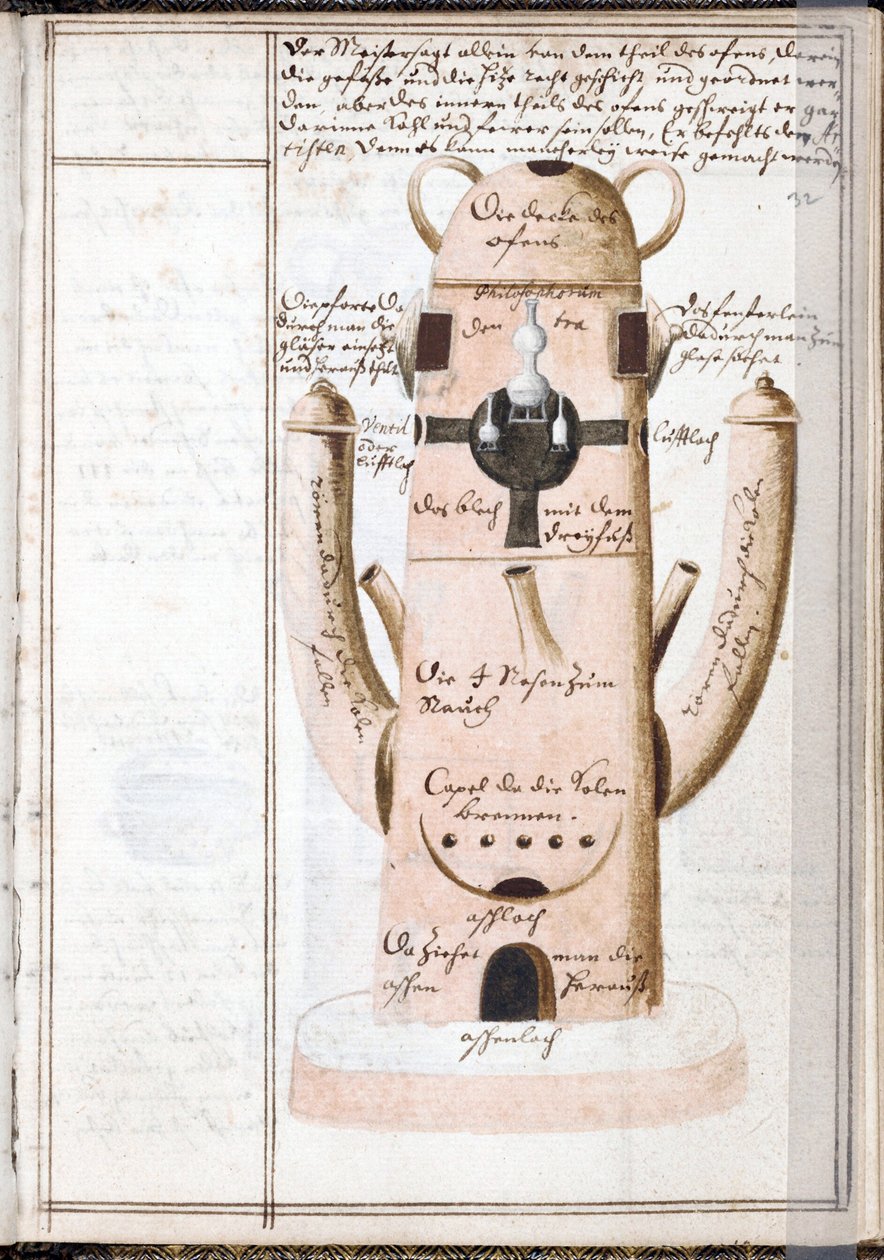 Der Meister sagt allein von dem theil des ofens, darein
die gefäße und die Hitze recht geschickt und geordnet wer-
den aber des innern theils des ofens geschweigt er gar
darinne Kohl und feüer sein sollen, Er befiehlts dem Ar-
tisten Denn es kann mancherley weise gemacht werden
32
Die decke des
ofens
Philosophorum
Die pforte Da
durch man die
gläser einsetzt
und herauß thut
den
tra
Das fensterlein
dadurch man zum
glase siehet
Ventil
oder
lufftloch
lufftloch
das blech mit dem
dreyfuß
rören dadurch die Kolen
fallen
rören dadurch die Kolen
fallen.
Die 4 Nasen zum
Rauch
Capel da die Kolen
brennen.
aschloch
Da ziehet man die
aschen herauß
aschenloch